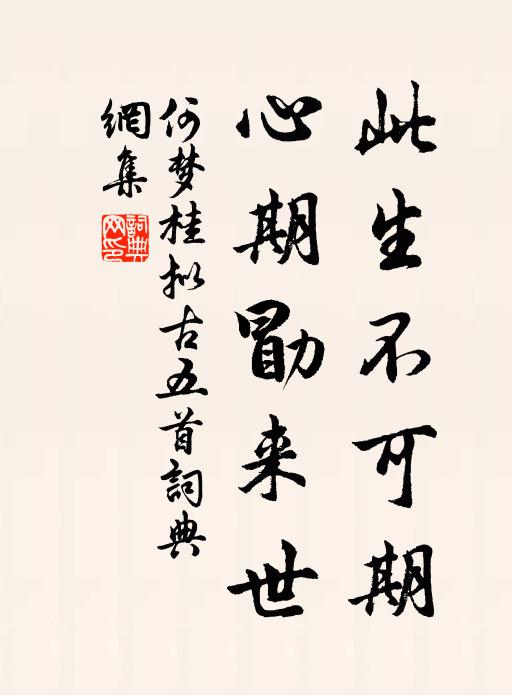 此生不可期
心期勖来世
何梦桂拟古五首詞典
網集
詞典
网印